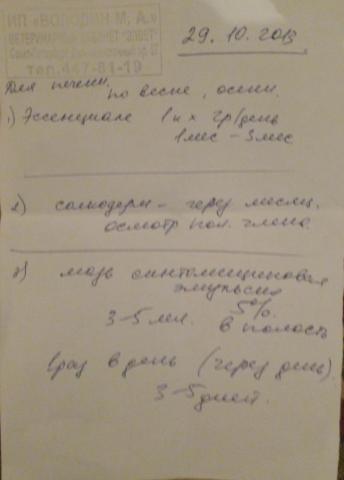 ИП «ВОЛОДИН М. А.»
ВЕТЕРИНАРНЫЙ КАБИНЕТ "ЗОВЕТ"
Санкт-Петербург
тел. 447-81-19
29. 10. 2013.
Для печени.
по весне, осени.
1) Эссенциале 1к х 2р/день
1 мес – 3 мес
2) солкодерм – через месяц.
осмотр пол. члена.
3) мазь синтомициновая
эмульсия
3-5 мл. 5%.
в полость
1 раз в день (через день).
3-5 дней.